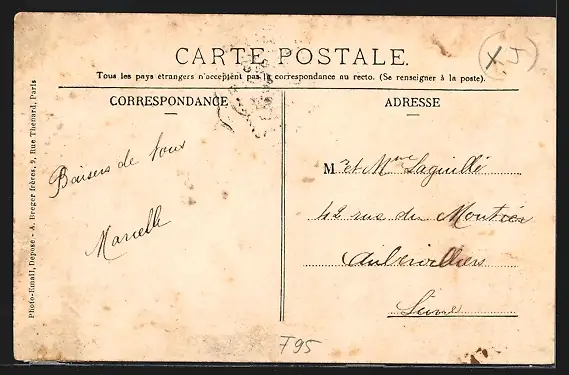 CARTE POSTALE.
Tous les pays étrangers n'acceptent pas la correspondance au recto. (Se renseigner à la poste).
CORRESPONDANCE
ADRESSE
Baisers de tous
Marcelle
M r et Mme Laguillé
42 rue du Moutier
Aubervilliers
Seine
Photo-Email, Déposé - A. Breger frères, 9, Rue Thénard, Paris
XJ
F95